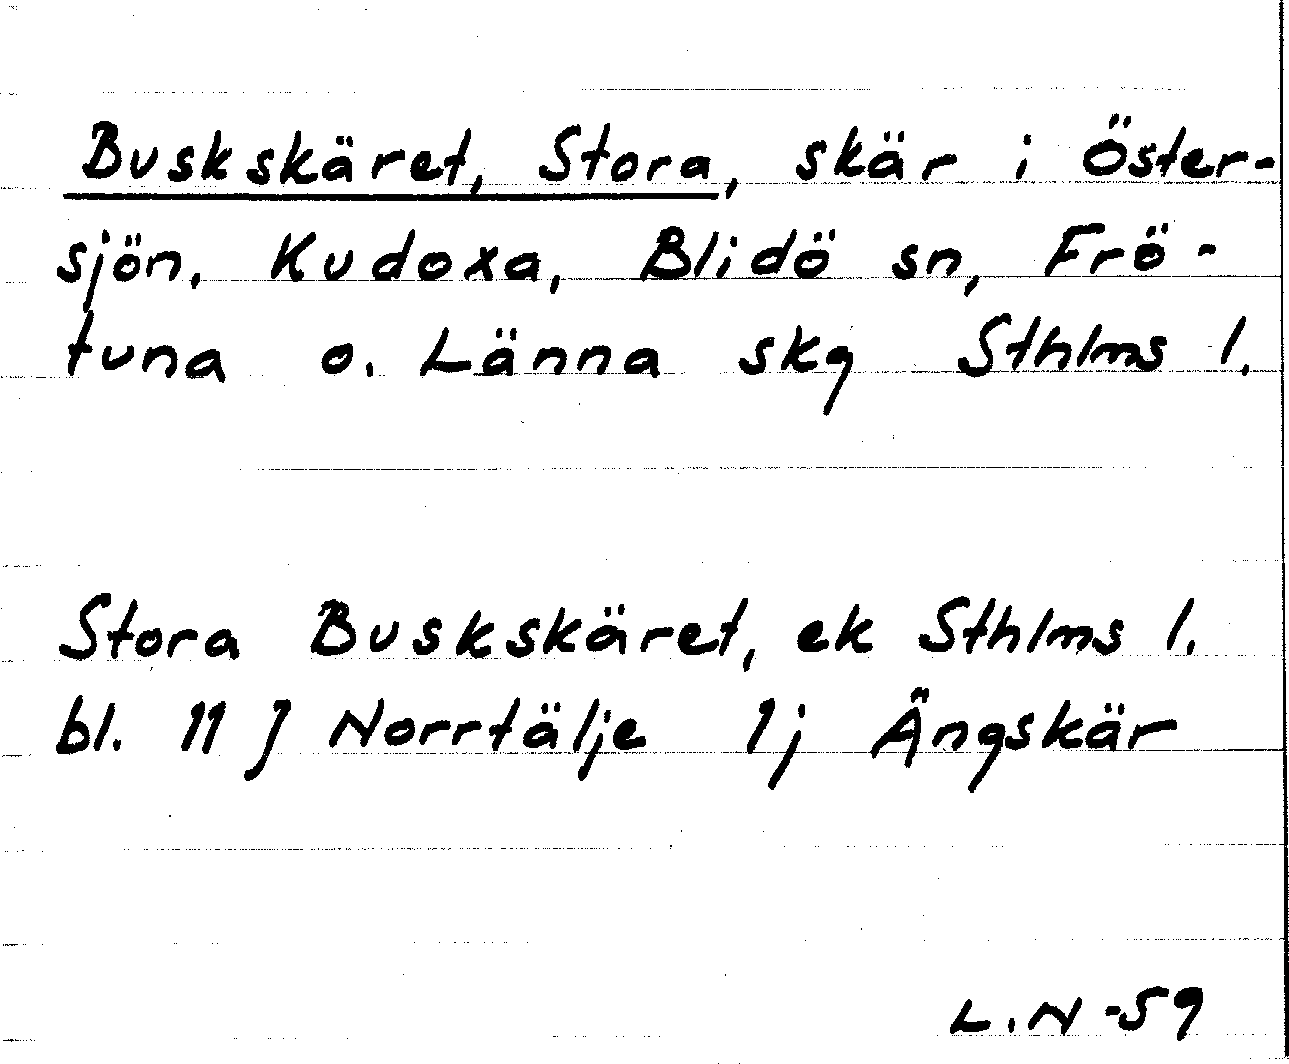 Buskskäret, Stora, skär i Öster-
sjön, Kudoxa, Blidö sn, Frö-
tuna o. Länna skg Sthlms l.
Stora Buskskäret, ek Sthlms l.
bl. 11 J Norrtälje 1j Ängskär
L.N -59